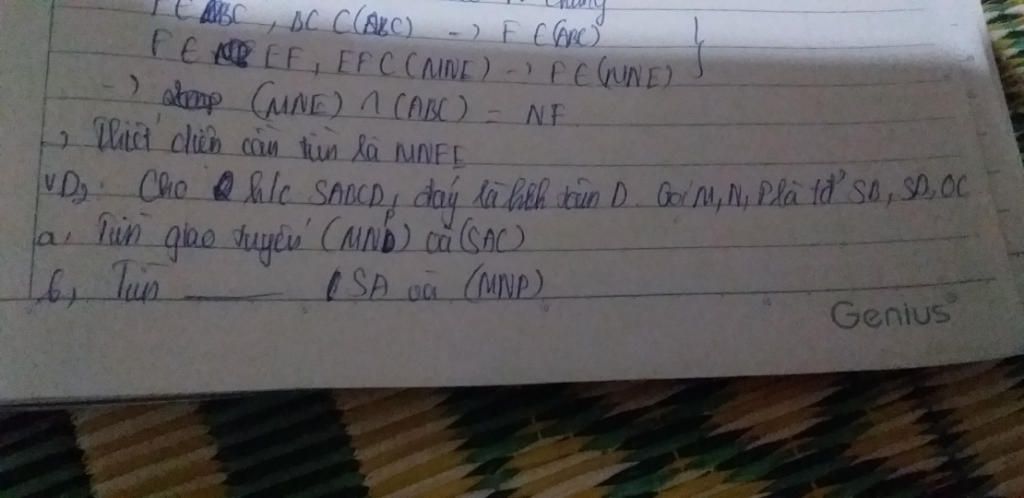 F C ABC, BC C (ABC) -> F C (ABC)
F E EF, EF C (MNE) -> F E (MNE)
-> (MNE) ∩ (ABC) = NF
-> Thiết diện cần tìm là MNFE
VD2: Cho h/c SABCD, đáy là hbh tâm O. Gọi M, N, P là tđ SB, SD, OC
a, Tìm giao tuyến (MNP) và (SAC)
b, Tìm ——— SA và (MNP)
Genius